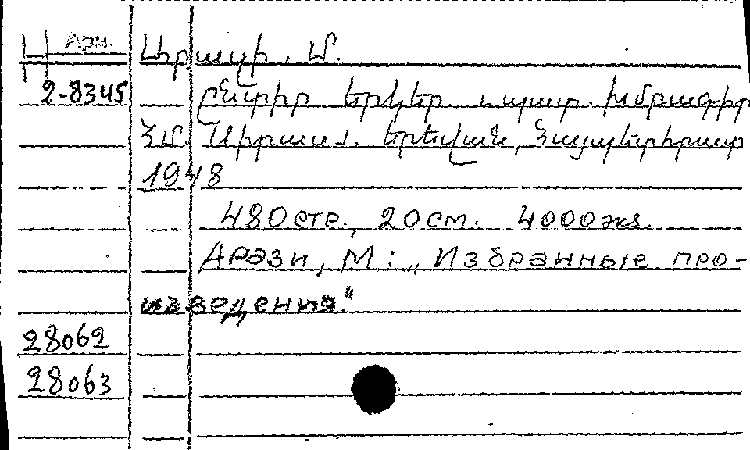 Арм.
Արազի, Մ.
2-8345 Ընտիր երկեր պատ. խմբագիր
Հմ. Սիրաս. Երևան, Հայպետհրատ
1948
480стр., 20см. 4000экз.
Арази, М: „Избранные про-
изведения."
28062
28063